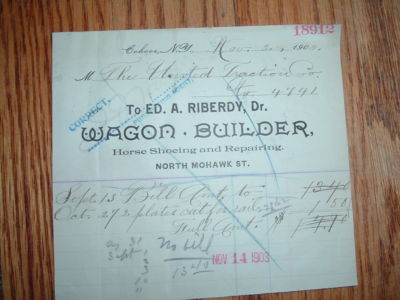 18912
Cohoes, N.Y. Nov. 1903
M The United Traction Co.
No. 4741
CORRECT,
To ED. A. RIBERDY, Dr.
WAGON · BUILDER,
Horse Shoeing and Repairing.
NORTH MOHAWK ST.
Sept. 13 Bill Amt. to
Oct. 27 2 plates cut for 1 50
Full Amt.
no bill
13 40
NOV 14 1903